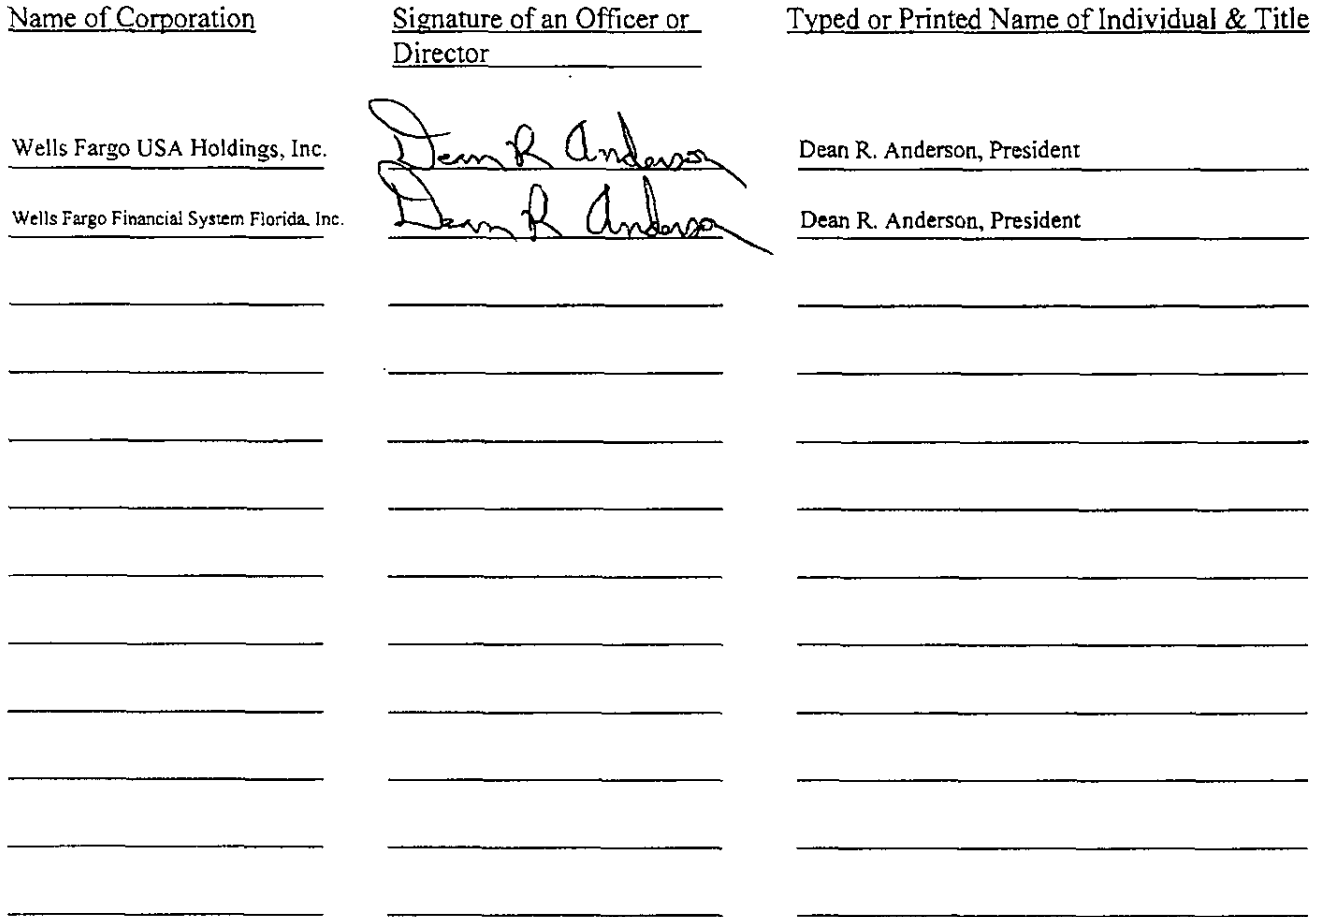 Name of Corporation Signature of an Officer or Typed or Printed Name of Individual & Title
Director
Wells Fargo USA Holdings, Inc. Dean R Anderson Dean R. Anderson, President
Wells Fargo Financial System Florida, Inc. Dean R Anderson Dean R. Anderson, President